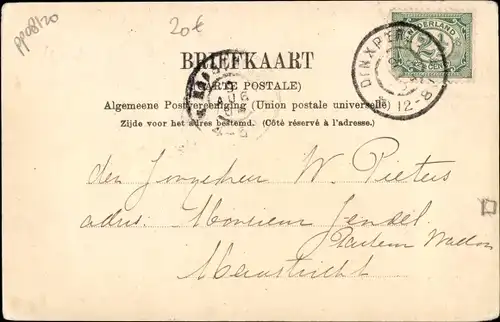 pp08/20
20€
BRIEFKAART
(CARTE POSTALE)
Algemeene Postvereeniging (Union postale universelle)
Zijde voor het adres bestemd. (Côté réservé à l'adresse.)
NEDERLAND
2½
CENT
DINXPER
12-8
AUG
den Jongeheer W. Pieters
adres. Monsieur Jendel
Maastricht